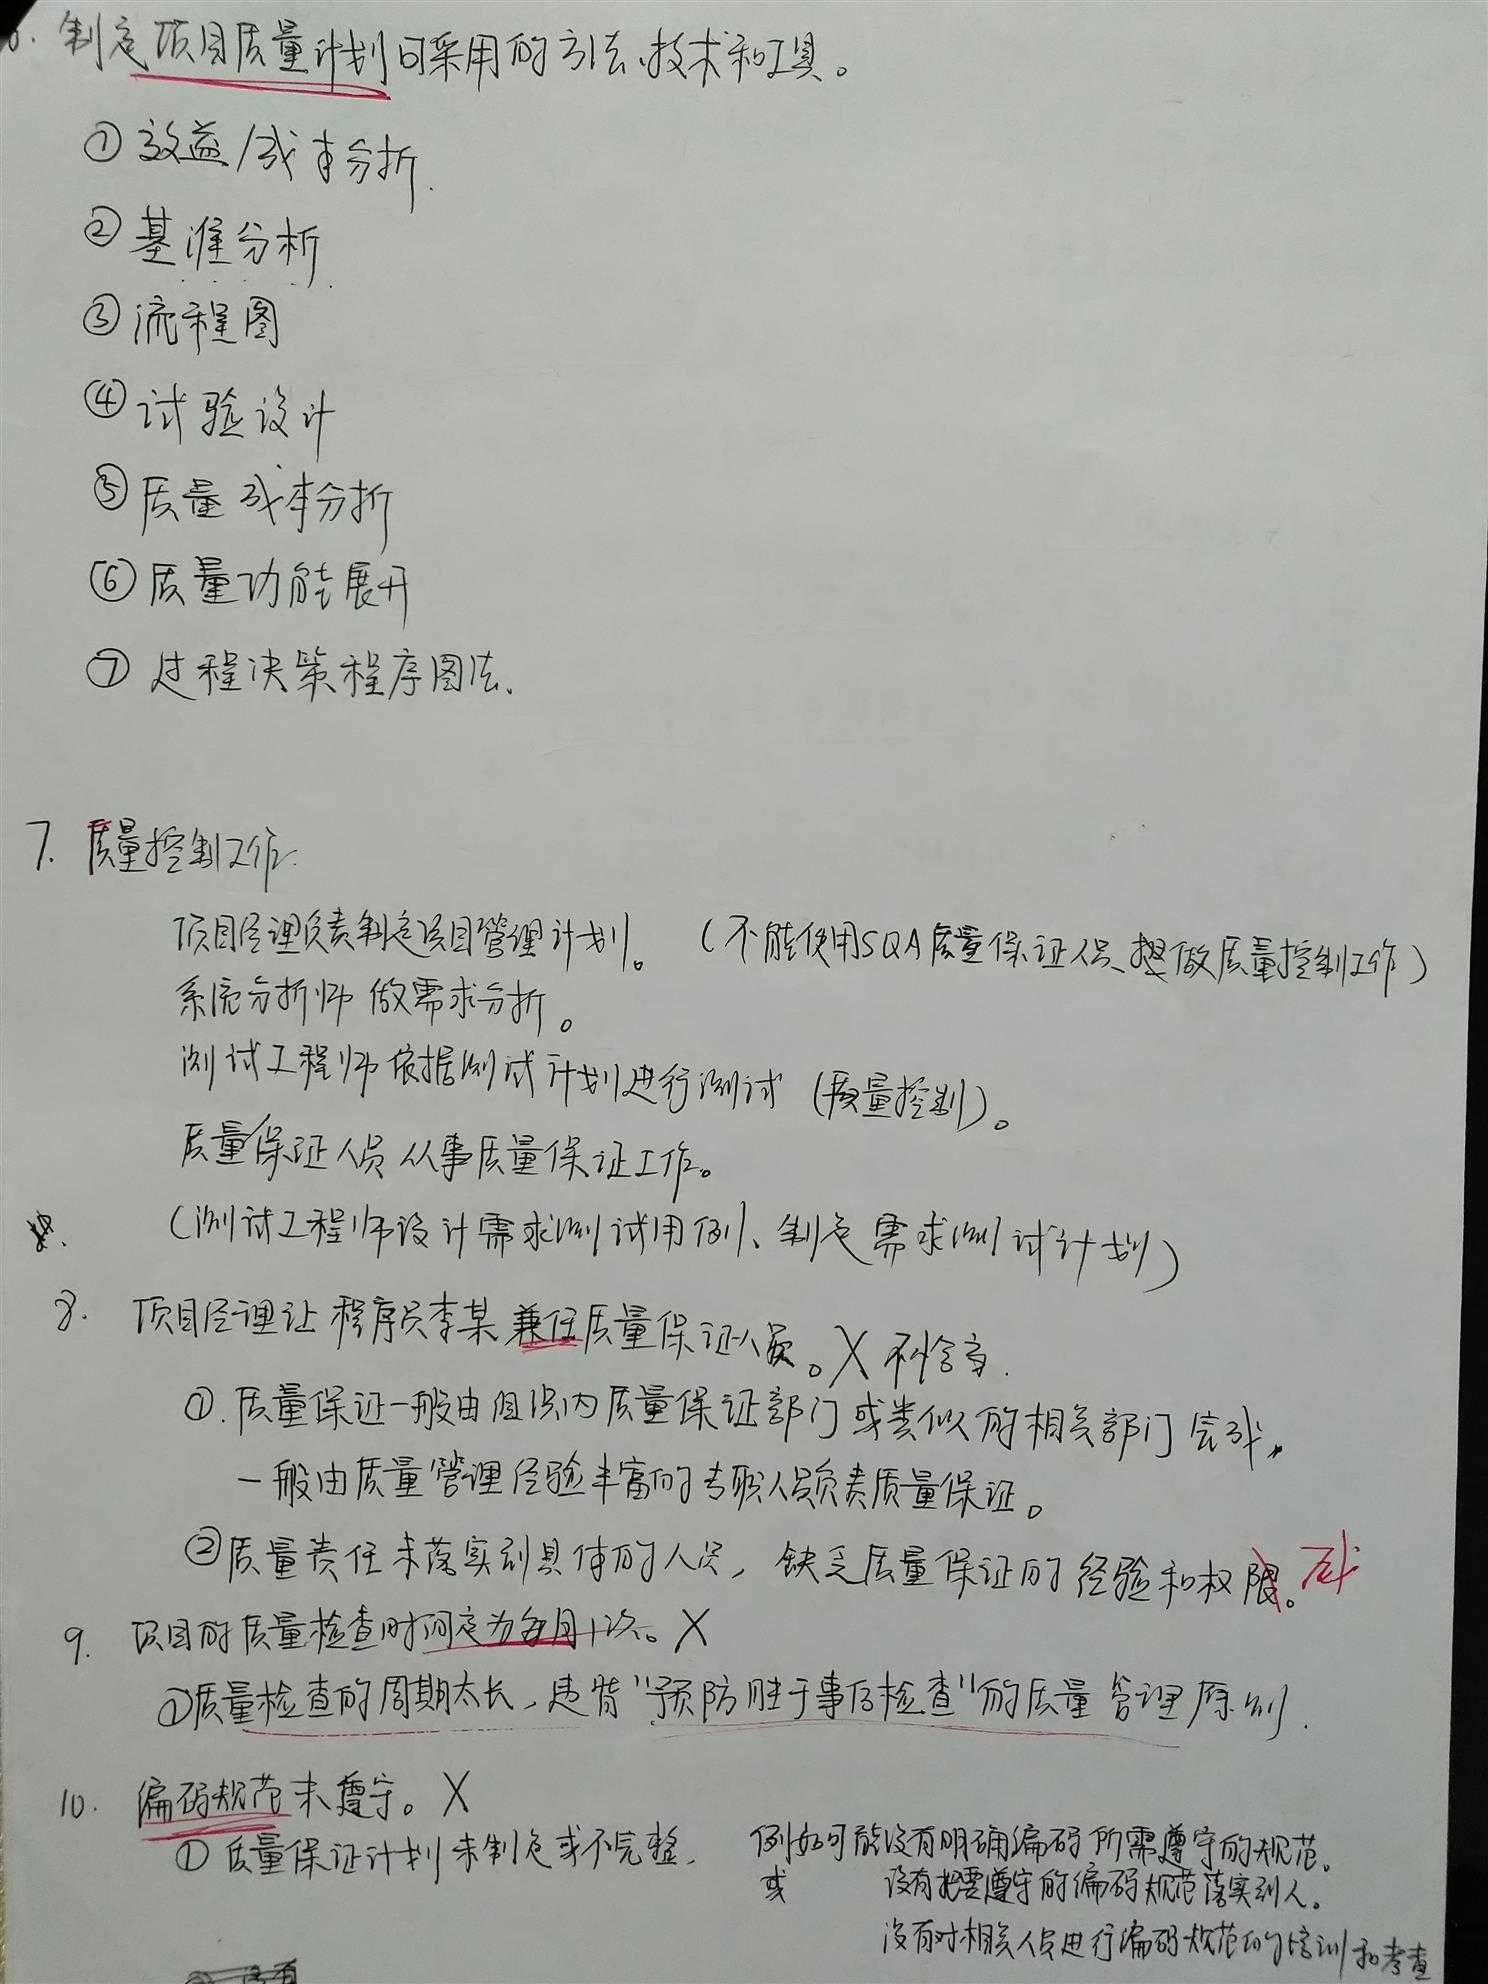 6. 制定项目质量计划可采用的方法、技术和工具。
① 效益/成本分析.
② 基准分析
③ 流程图
④ 试验设计
⑤ 质量成本分析
⑥ 质量功能展开
⑦ 过程决策程序图法、
7. 质量控制工作.
项目经理负责制定项目管理计划。（不能使用SQA质量保证人员、做质量控制工作）
系统分析师做需求分析。
测试工程师依据测试计划进行测试（质量控制）。
质量保证人员从事质量保证工作。
（测试工程师设计需求测试用例、制定需求测试计划）
8. 项目经理让程序员李某兼任质量保证人员。X 不恰当.
①. 质量保证一般由组织内质量保证部门或类似的相关部门完成,
一般由质量管理经验丰富的专职人员负责质量保证。
② 质量责任未落实到具体的人员，缺乏质量保证的经验和权限。
9. 项目的质量检查时间定为每月1次。X
① 质量检查的周期太长，违背"预防胜于事后检查"的质量管理原则.
10. 编码规范未遵守。X
① 质量保证计划未制定或不完整、 例如可能没有明确编码所需遵守的规范。
或 没有把要遵守的编码规范落实到人。
没有对相关人员进行编码规范的培训和考查